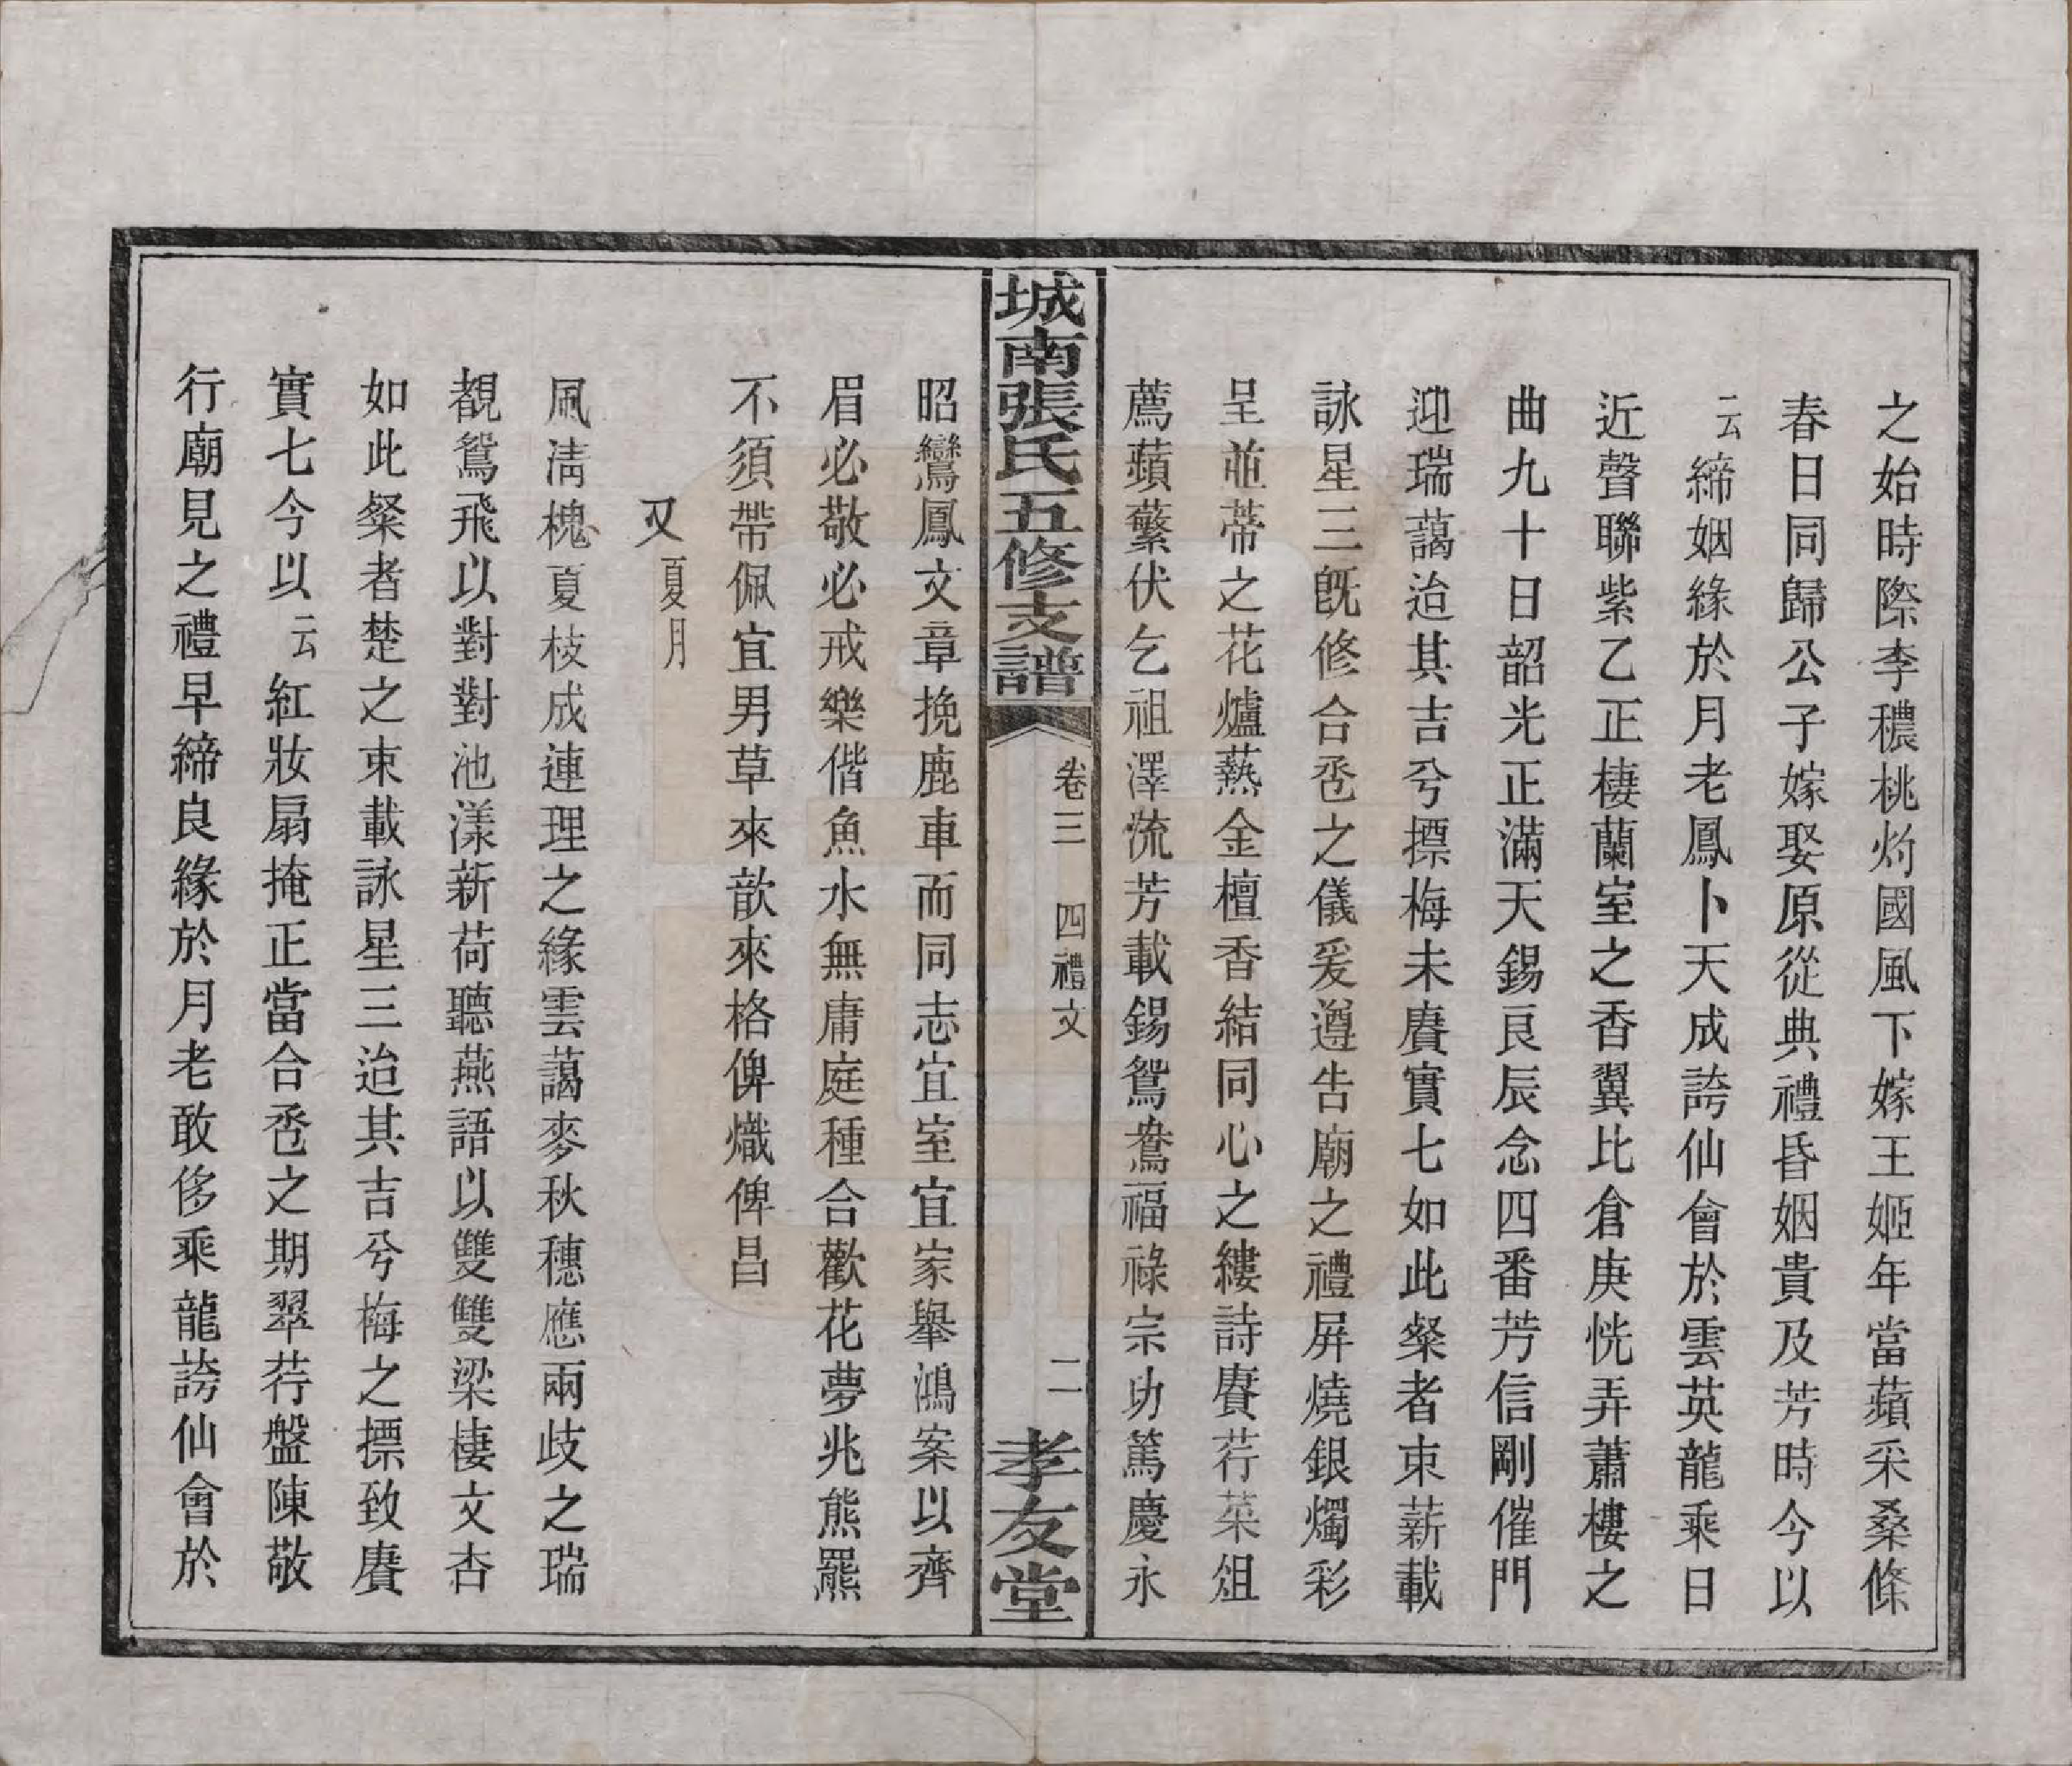 之始時際李穠桃灼國風下嫁王姬年當蘋采桑條
春日同歸公子嫁娶原從典禮昏姻貴及芳時今以
云締姻緣於月老鳳卜天成誇仙會於雲英龍乘日
近聲聯紫乙正棲蘭室之香翼比倉庚恍弄蕭樓之
曲九十日韶光正滿天錫良辰念四番芳信剛催門
迎瑞藹迨其吉兮摽梅未賡實七如此粲者束薪載
詠星三旣修合卺之儀爰遵告廟之禮屏燒銀燭彩
呈並蒂之花爐爇金檀香結同心之縷詩賡荇菜俎
薦蘋蘩伏乞祖澤流芳載錫鴛鴦福祿宗功篤慶永
城南張氏五修支譜
卷三
四禮文
二
孝友堂
昭鸞鳳文章挽鹿車而同志宜室宜家舉鴻案以齊
眉必敬必戒樂偕魚水無庸庭種合歡花夢兆熊羆
不須帶佩宜男草來歆來格俾熾俾昌
又夏月
風清槐夏枝成連理之緣雲藹麥秋穗應兩歧之瑞
覩鴛飛以對對池漾新荷聽燕語以雙雙梁棲文杏
如此粲者楚之束載詠星三迨其吉兮梅之摽致賡
實七今以云紅妝扇掩正當合卺之期翠荇盤陳敬
行廟見之禮早締良緣於月老敢侈乘龍誇仙會於